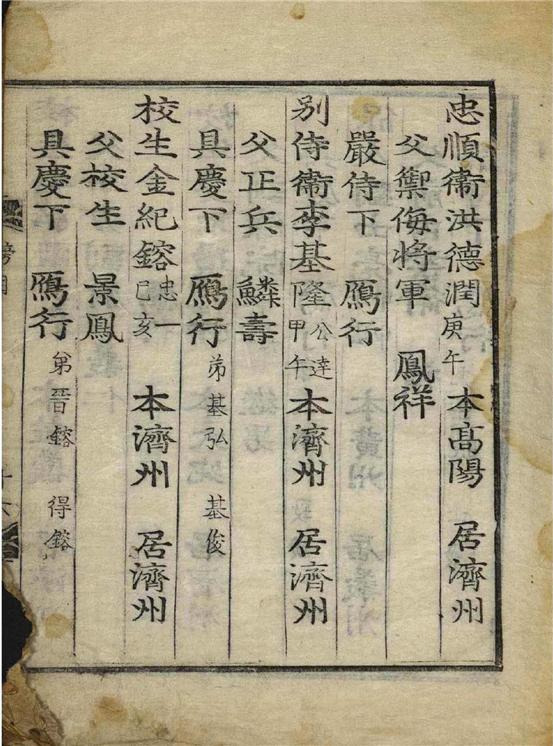 忠順衛洪德潤庚午 本高陽 居濟州
父禦侮將軍 鳳祥
嚴侍下 鴈行
別侍衛李基隆公達甲午 本濟州 居濟州
父正兵 鱗壽
具慶下 鴈行 弟基弘 基俊
校生金紀鎔忠一己亥 本濟州 居濟州
父校生 景鳳
具慶下 鴈行 弟晋鎔 得鎔
榜目